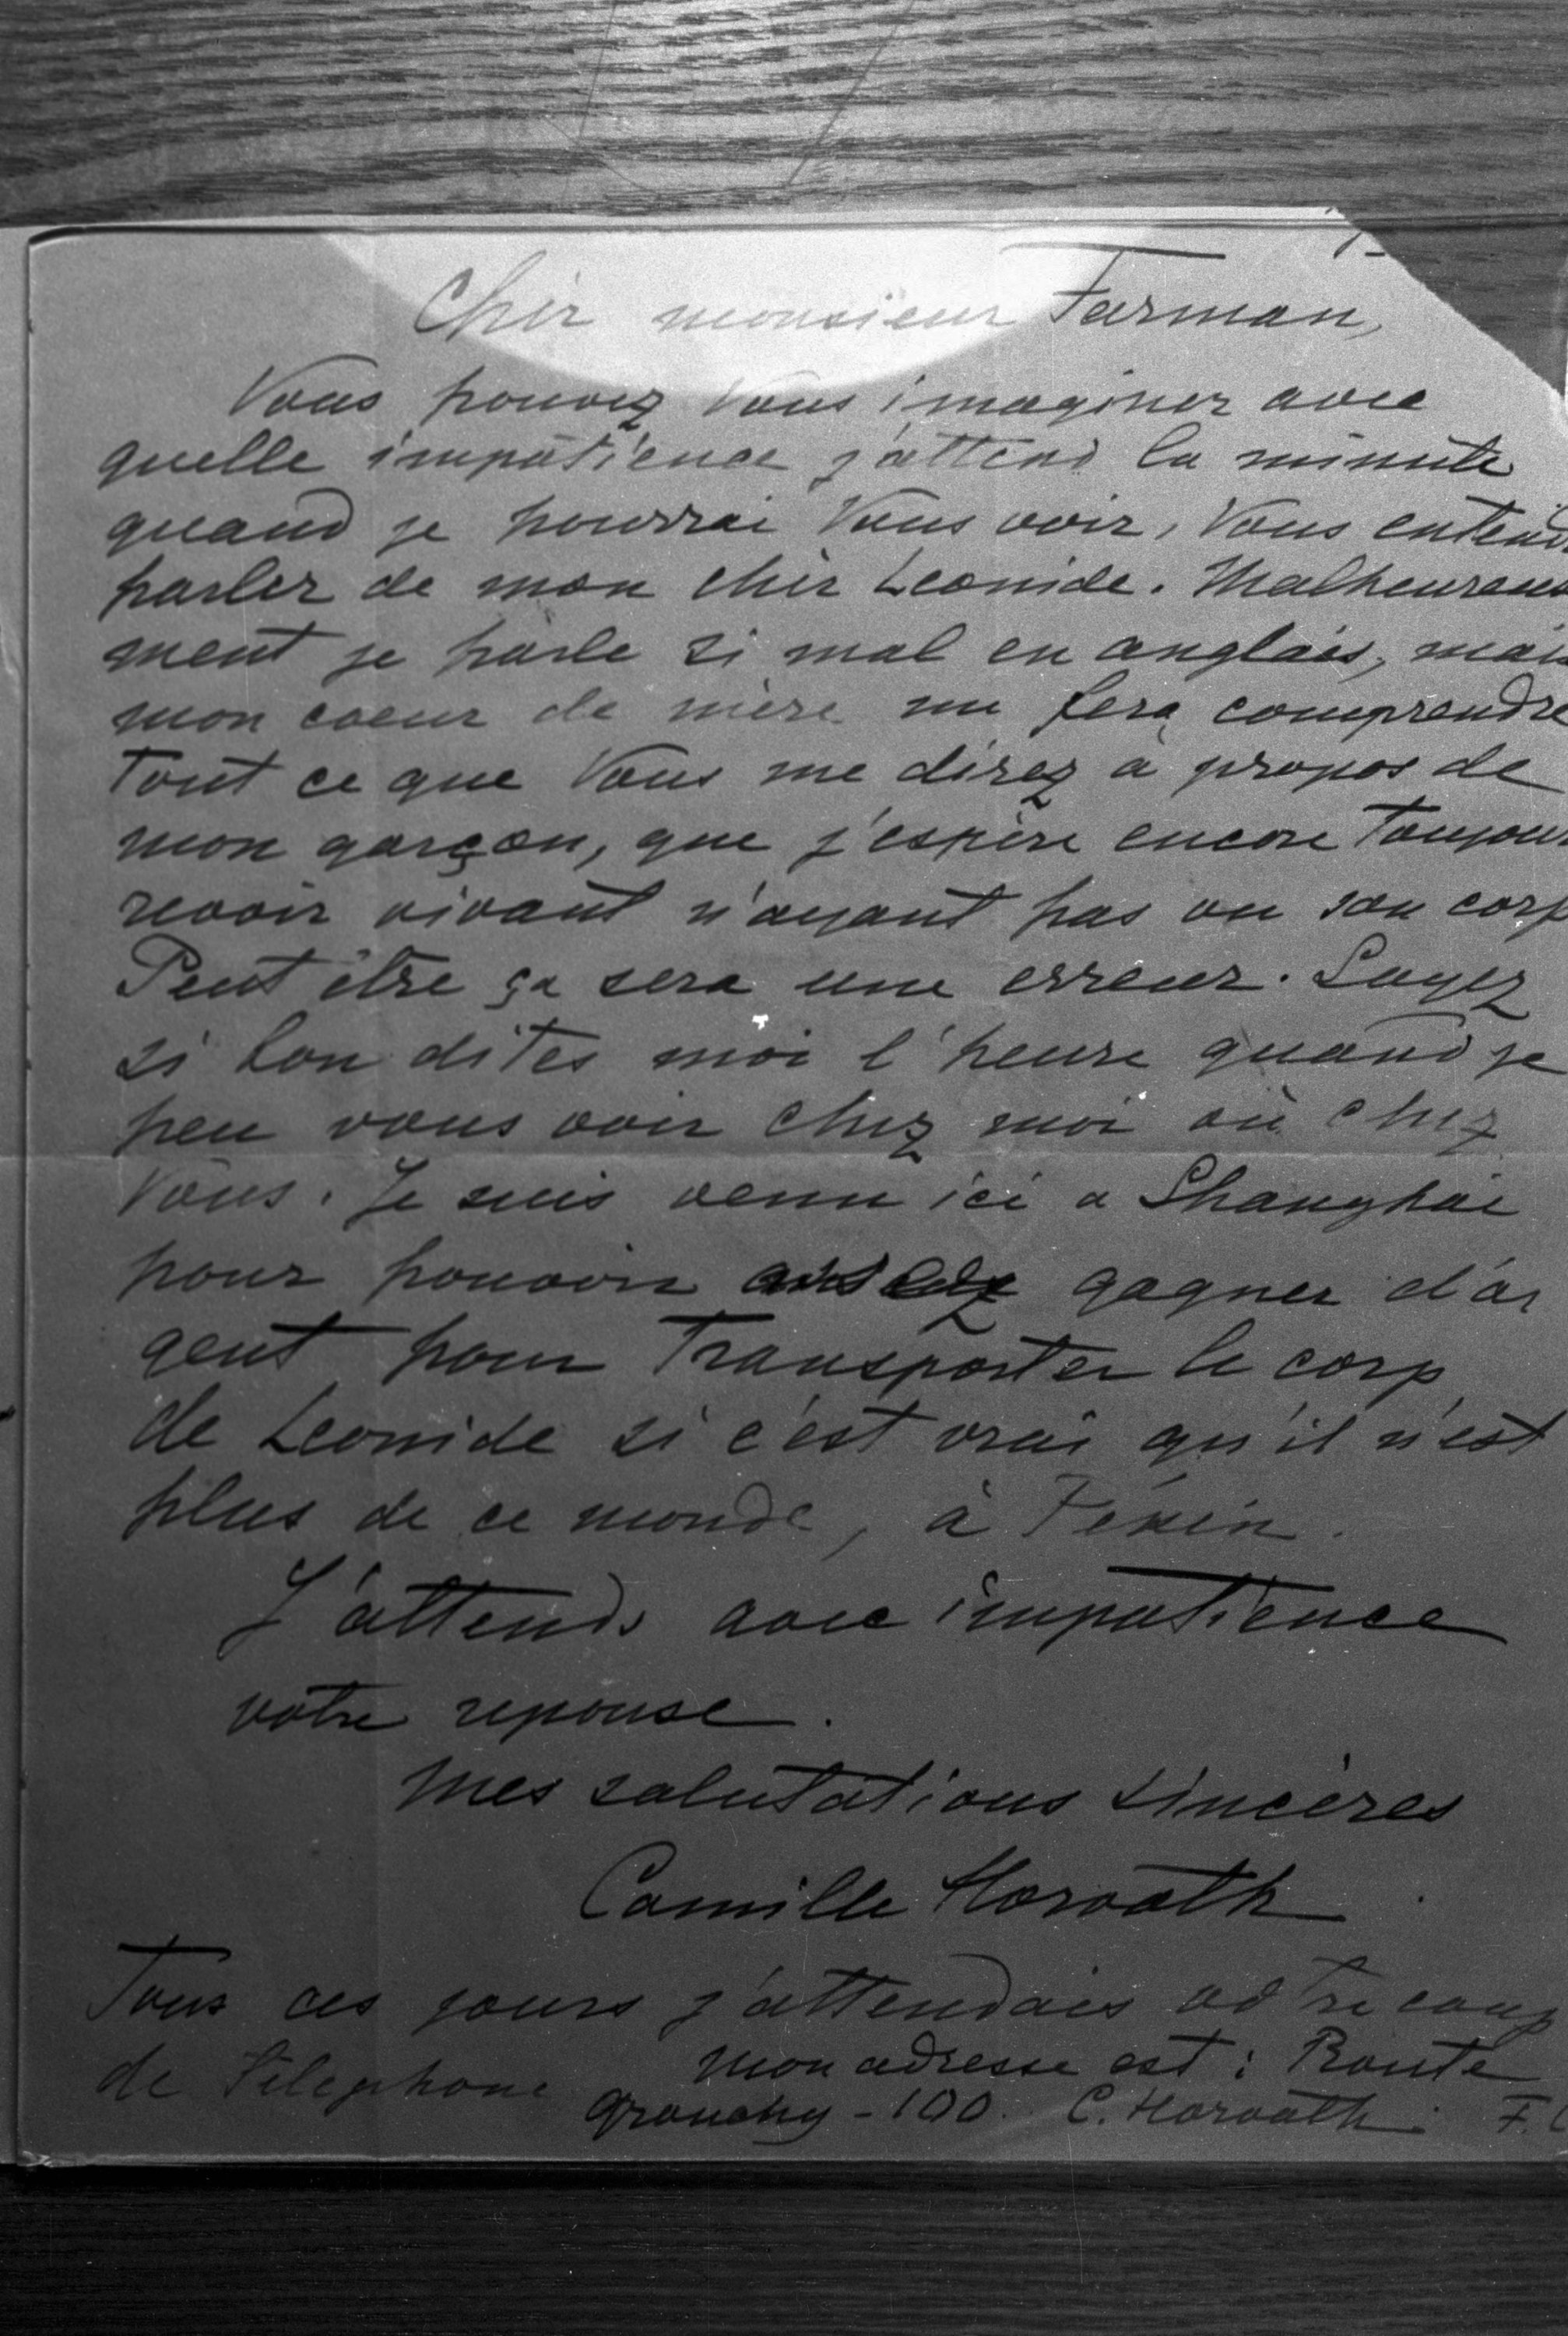 Cher monsieur Farman,
Vous pouvez Vous imaginer avec
quelle impatience j'attend la minute
quand je pourrai Vous voir, Vous entend
parler de mon cher Leonide. Malheureus
ment je parle si mal en anglais, mais
mon coeur de mère me fera comprendre
tout ce que Vous me direz à propos de
mon garçon, que j'espère encore toujour
revoir vivant n'ayant pas vu son corp
Peut être ça sera une erreur. Soyez
si bon dites moi l'heure quand je
peu vous voir chez moi où chez
Vous. Je suis venu ici a Shanghai
pour pouvoir gagner d'ar
gent pour transporter le corp
de Leonide si c'est vrai qu'il n'est
plus de ce monde, à Pékin.
J'attends avec impatience
votre reponse.
Mes salutations sincères
Camille Horvath
Tous ces jours j'attendais votre coup
de télephone mon adresse est: Route
Grouchy - 100. C. Horvath. F.